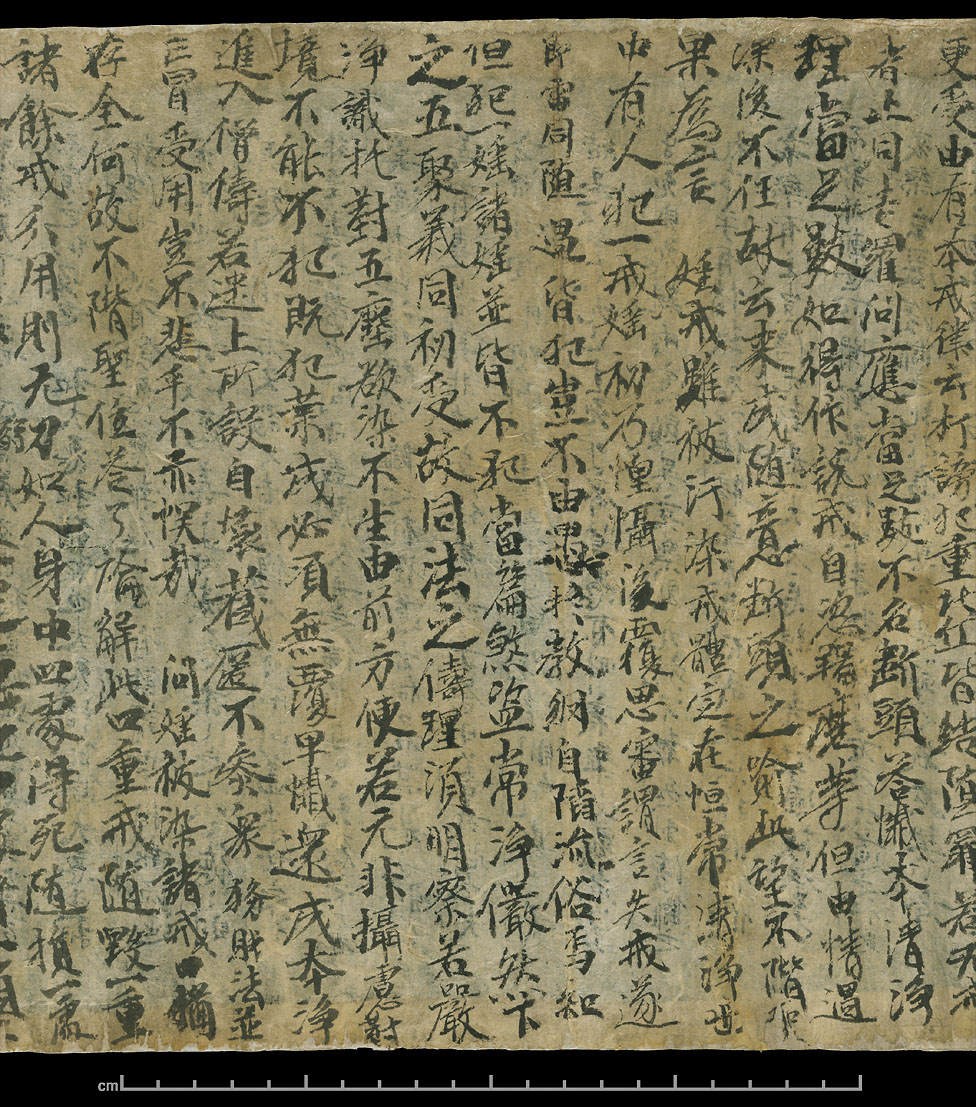 更受由有本戒律云打謗犯重比丘皆結墮罪若无本
者止同吉羅問應當足數不名斷頭答懺本清淨
理當足數如得作説戒自恣羯磨等但由情過
深後不任故云來成随意斷頭之喻此望不階聖
果為言 婬戒雖被汙染戒體定在恒常清淨世
中有人犯一戒婬初乃惶懾後覆思審謂言失戒遂
即雷同随過皆犯豈不由愚於教網自陷流俗焉知
但犯一婬諸婬並皆不犯當篇煞盜常淨儼然下
之五聚義同初受故同法之儔理須明察若嚴
淨識托對五塵欲染不生由前方便若元非攝慮對
境不能不犯既犯業成必須無覆早懺還成本淨
進入僧儔若迷上所設自壞藏匿不參衆務財法並
亡冒受用豈不悲乎不亦悮哉 問婬被染諸戒猶
存全何故不階聖位答了論解此四重戒随毀一重
諸餘戒不用則无力如人身中四處得死随損一處